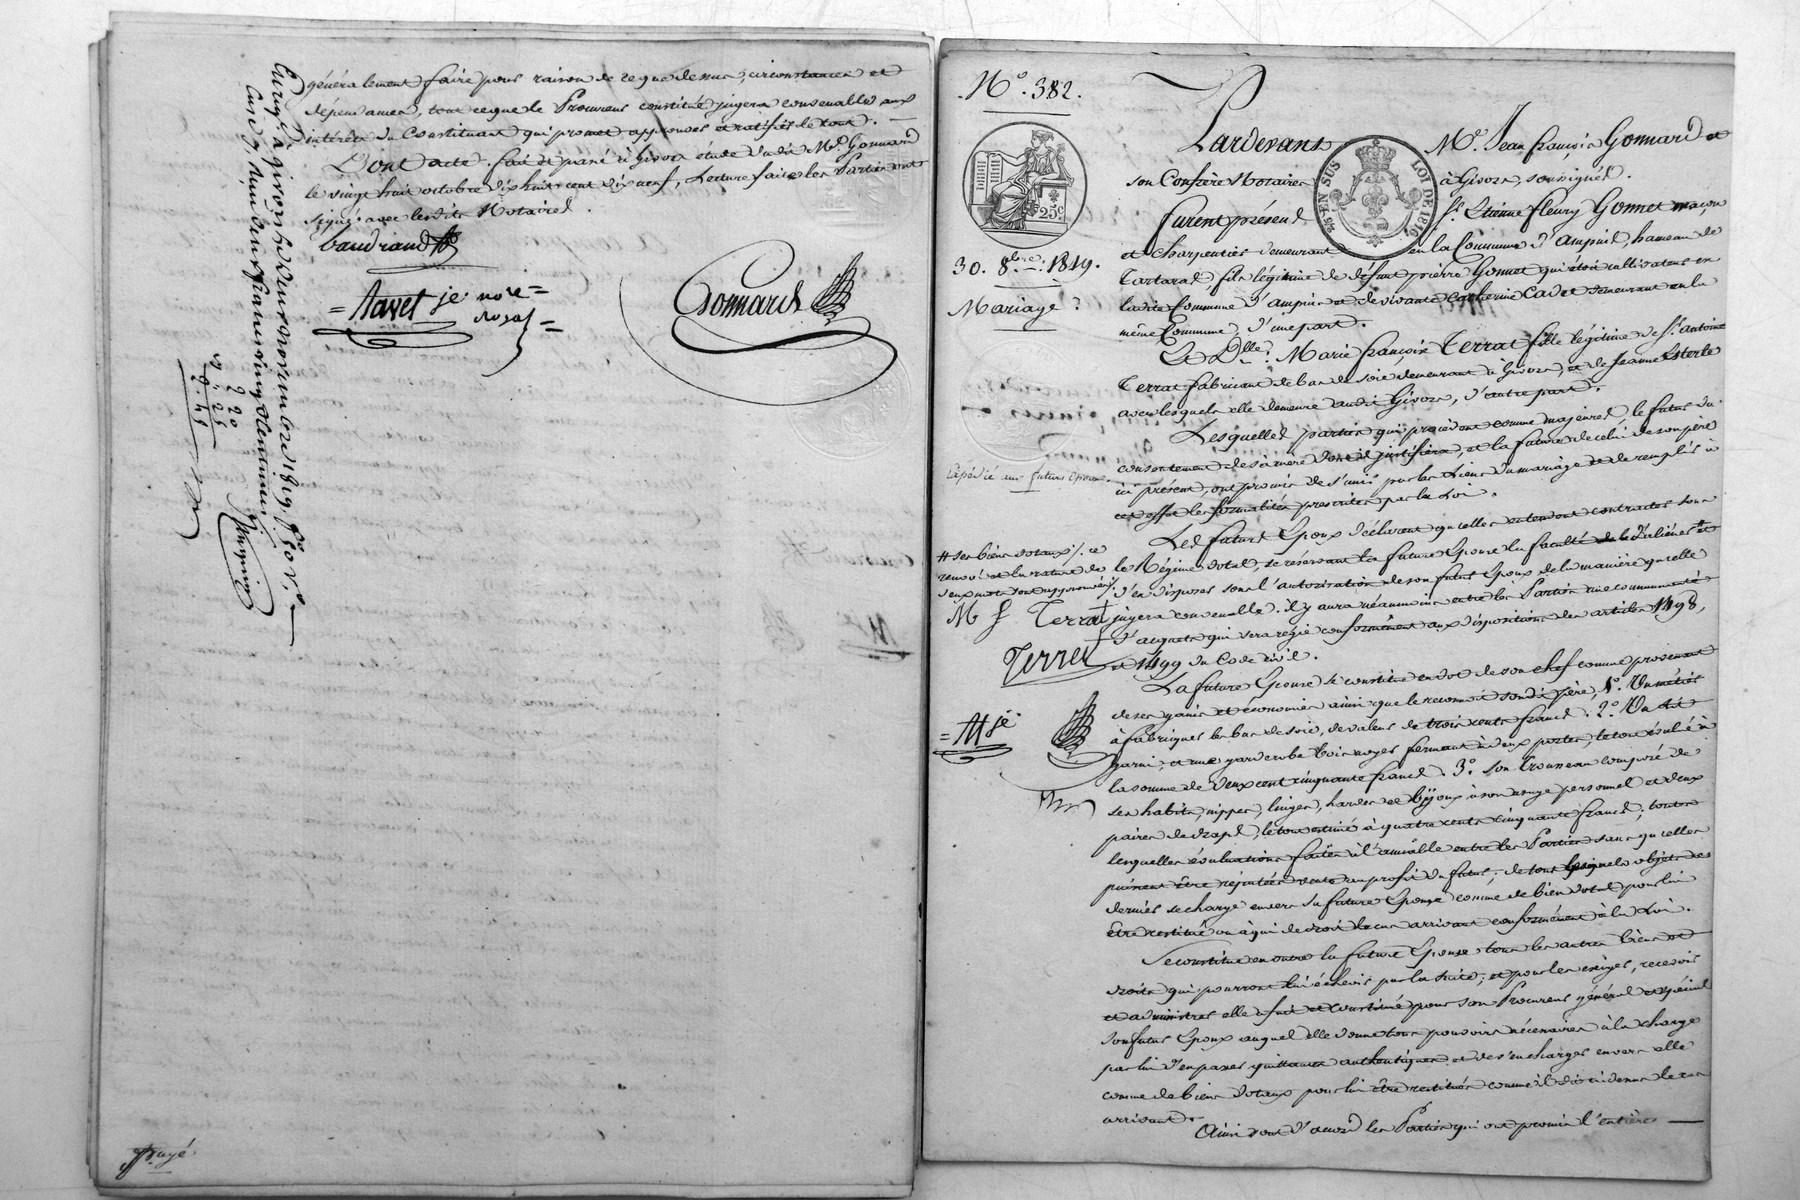 généralement faire pour raison de ce que dessus, circonstances et
dépendances, tout ce que le Procureur constitué jugera convenable aux
intérêts du Constituant qui promet approuver et ratifier le tout.
Dont acte. fait et passé à Givors étude dudit Me. Gonnard
le vingt huit octobre dix huit cent dix neuf, Lecture faite les Parties ont
signé avec lesdits Notaires.
baudrand
= Navet je nore =
royal =
Gonnard
Enrgé à givors le deux novembre 1819, fo 50 Vo.
9 20
2 45
payé.
No. 382.
25c
30. 8bre. 1819.
Mariage
Expédié aux futurs Epoux.
EN SUS
LOI DE 1816
Pardevant Me. Jean françois Gonnard et
son Confrère Notaires à Givors, soussignés.
furent présents sr. Etienne fleury Gonnet maçon
et charpentier demeurant en la Commune d'Ampuis, hameau de
Tartaras, fils légitime de défunt pierre Gonnet qui étoit cultivateur en
ladite Commune d'ampuis et de vivante Catherine Cadet demeurant en la
même Commune, d'une part.
Et Dlle. Marie françoise Terrat fille légitime de sr. Antoine
Terrat fabricant de bas de soie demeurant à Givors, et de Jeanne Esterle
avec lesquels elle demeure audit Givors, d'autre part.
Lesquelles parties qui procèdent comme majeures, le futur du
consentement de sa mère dont il justifiera, et la future de celui de son père
ici présent, ont promis de s'unir par les Liens du mariage et de remplir à
cet effet les formalités prescrites par la Loi.
Les futurs Epoux déclarent qu'elles entendent contracter sous
le Régime dotal, se réservant la future Epouse la faculté de aliéner # et
d'en disposer sous l'autorisation de son futur Epoux de la manière qu'elle
jugera convenable. il y aura néanmoins entre les Parties une communauté
d'acquets qui sera régie conformément aux dispositions des articles 1498,
et 1499 du Code civil.
# ses biens dotaux /. ce
renvoi et la rature de
deux mots sont approuvés /.
M f Terrat
Terrat
= N je
La future Epouse se constitue en dot de son chef comme provenant
de ses gains et économies ainsi que le reconnoit sondit père, 1o. Un métier
à fabriquer les bas de soie, de valeur de trois cents francs. 2o. Un lit
garni, et une garderobe bois noyer fermant à deux portes, le tout évalué à
la somme de deux cent cinquante francs. 3o. son trousseau composé de
ses habits, nippes, linges, hardes et bijoux à son usage personnel et deux
paires de draps, le tout estimé à quatre cents cinquante francs; toutes
lesquelles évaluations faites à l'amiable entre les Parties sans qu'elles
puissent être réputées vente au profit du futur; de tous lesquels objets ce
dernier se charge envers sa future Epouse comme de bien dotal pour lui
être restitué ou à qui de droit le cas arrivant conformément à la Loi.
Se constitue en outre la future Epouse tous les autres biens et
droits qui pourront lui échoir par la suite; et pour les exiger, recevoir
et administrer elle a fait et constitué pour son Procureur général et spécial
son futur Epoux auquel elle donne tous pouvoirs nécessaires à la charge
par lui d'en passer quittances authentiques et de s'en charger envers elle
comme de biens dotaux pour lui être restitués comme il est dit ci dessus le cas
arrivant.
Ainsi sont d'accord les Parties qui ont promis l'entière